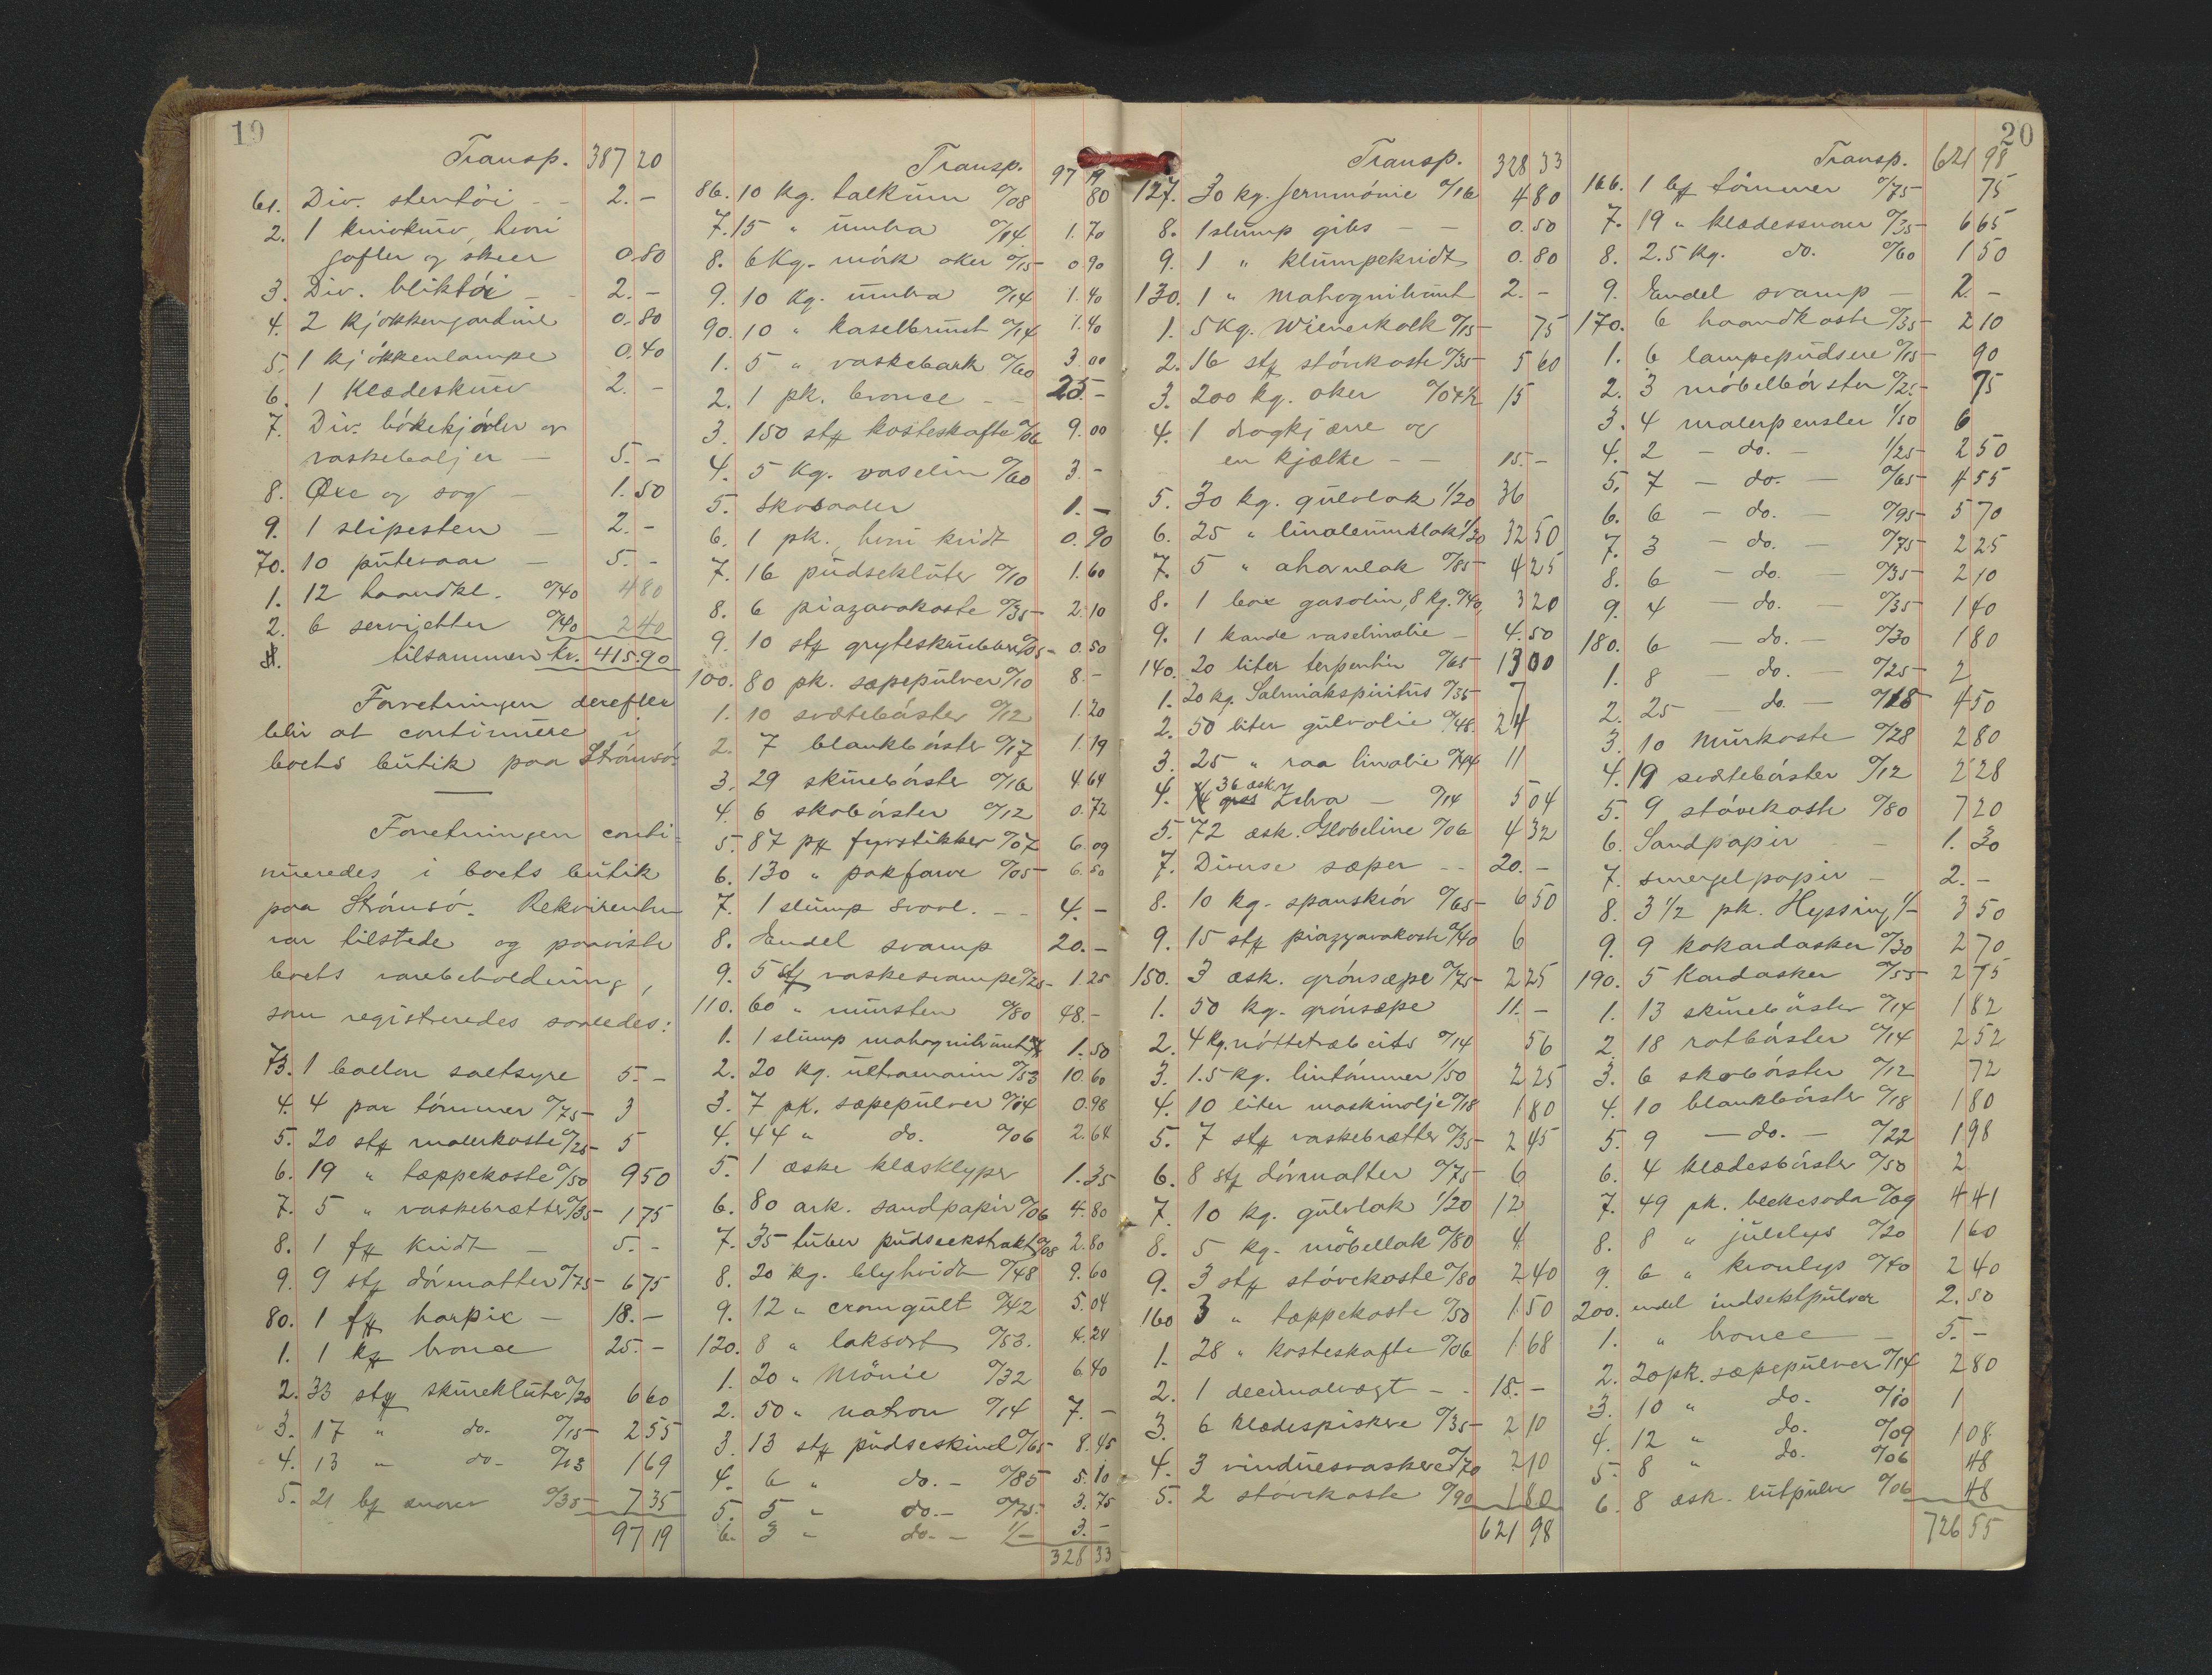 19
Transp. 387 20
61. Div. stentöi - - 2.-
2. 1 knivkurv, hvori
gafler og skeer 0.80
3. Div. bliktöi - - 2.-
4. 2 kjøkkengardiner 0.80
5. 1 kjökkenlampe 0.40
6. 1 Klædeskurv 2.-
7. Div. bökekjörler og
vaskebaljer - 5.-
8. Øxe og sag - 1.50
9. 1 slipesten - 2.-
70. 10 putevaar - 5.-
1. 12 haandkl. 0/40 4 80
2. 6 servietter 0/40 2 40
tilsammen kr. 415.90
Forretningen derefter
blir at continuere i
boets butik paa Strömsö.
Forretningen conti-
nueredes i boets butik
paa Strömsö. Rekvirenten
var tilstede og paaviste
boets varebeholdning,
som registreredes saaledes:
73. 1 ballon saltsyre 5.-
4. 4 par tömmer 0/75 3
5. 20 stk malerkoste 0/25 5
6. 19 " tæppekoste 0/50 9 50
7. 5 " vaskebrætter 0/35 1 75
8. 1 fk Kridt - 5.-
9. 9 stk dörmatter 0/75 6 75
80. 1 fk harpix - 18.-
1. 1 kg bronce 25.-
2. 33 stk skureklute 0/20 6 60
3. 17 " do. 0/15 2 55
4. 13 " do- 0/13 1 69
5. 21 bk snorer 0/35 7 35
97 19
Transp. 97 19
86. 10 kg. talkum 0/08 80
7. 15 " umbra 0/14 1.70
8. 6 Kg. mörk oker 0/15 0.90
9. 10 Kg. umbra 0/14 1.40
90. 10 " kaselbrunt 0/14 1.40
1. 5 " vaskebark 0/60 3.00
2. 1 pk. bronce - - 25.-
3. 150 stk kosteskafte 0/06 9.00
4. 5 Kg. vaselin 0/60 3.-
5. Skosaaler 1.-
6. 1 pk., hvri kridt 0.90
7. 16 pudsekluter 0/10 1.60
8. 6 piazavakoste 0/35 2.10
9. 10 stk gryteskrubber 0/05 0.50
100. 80 pk. sæpepulver 0/10 8.-
1. 10 sværtebörster 0/12 1.20
2. 7 blankbörster 0/17 1.19
3. 29 skurebörster 0/16 4.64
4. 6 skobörster 0/12 0.72
5. 87 pk fyrstikker 0/07 6.09
6. 130 " pakfarve 0/05 6.50
7. 1 slump svovl. - - 4.-
8. Endel svamp 20.-
9. 5 stk vaskesvampe 0/25 1.25
110. 60 " mursten 0/80 48.-
1. 1 slump mahognibrunt 1.50
2. 20 kg. ultramarin 0/53 10.60
3. 7 pk. sæpepulver 0/14 0.98
4. 44 " do. 0/06 2.64
5. 1 æske klæsklyper 1.35
6. 80 ark. sandpapir 0/06 4.80
7. 35 tuber pudseekstrakt 0/08 2.80
8. 20 kg. blyhvidt 0/48 9.60
9. 12 " cromgult 0/42 5.04
120. 8 " laksort 0/53. 4.24
1. 20 " Mönie 0/32 6.40
2. 50 " natron 0/14 7.-
3. 13 stk pudseskind 0/65 8.45
4. 6 " do.- 0/85 5.10
5. 5 " do.- 0/75. 3.75
6. 3 " do.- 1/- 3.-
328 33
Transp. 328 33
127. 30 kg. jernmönie 0/16 4 80
8. 1 slump gibs - - 0.50
9. 1 " klumpekridt 0.80
130. 1 " Mahognibrunt 2.-
1. 5 Kg. Wienerkalk 0/15 75
2. 16 stk stövkoste 0/35 5 60
3. 200 kg. oker 0/07½ 15
4. 1 dragkjærre og
en kjælke - - 15.-
5. 30 kg. gulvlak 1/20 36
6. 25 " linoleumslak 1/30 32 50
7. 5 " ahornlak 0/85 4 25
8. 1 box gasolin, 8 kg. 0/40, 3 20
9. 1 kande vaselinolie - 4.50
140. 20 liter terpentin 0/65 13 00
1. 20 kg. Salmiakspiritus 0/35 7
2. 50 liter gulvolie 0/48. 24
3. 25 " raa linolie 0/44 11
4. 36 æsker Zebra - 0/14 5 04
5. 72 æsk. Globeline 0/06 4 32
7. Diverse sæper - - 20.-
8. 10 kg. spanskrör 0/65 6 50
9. 15 stk piazzavakoste 0/40 6
150. 3 æsk. grönsæpe 0/75 2 25
1. 50 kg. grönsæpe 11.-
2. 4 kg. nöttetræbeits 0/14 56
3. 1.5 kg. lintömmer 1/50 2 25
4. 10 liter maskinolje 0/18 1 80
5. 7 stk vaskebrætter 0/35 2 45
6. 8 stk dörmatter 0/75 6
7. 10 kg. gulvlak 1/20 12
8. 5 kg. möbellak 0/80 4
9. 3 stk stövekoste 0/80 2 40
160 3 " tæppekoste 0/50 1 50
1. 28 " kosteskafte 0/06 1 68
2. 1 decimalvægt - - 18.-
3. 6 klædespiskere 0/35 2 10
4. 3 vinduesvaskere 0/70 2 10
5. 2 stövekoste 0/90 1 80
621 98
20
Transp. 621 98
166. 1 bk tömmer 0/75 75
7. 19 " klædessnorer 0/35 6 65
8. 2.5 Kg. do. 0/60 1 50
9. Endel svamp - 2.-
170. 6 haandkoste 0/35 2 10
1. 6 lampepudsere 0/15 90
2. 3 möbelbörster 0/25 75
3. 4 malerpensler 1/50 6
4. 2 - do. - 1/25 2 50
5. 7 - do. - 0/65 4 55
6. 6 - do. - 0/95 5 70
7. 3 - do. 0/75 2 25
8. 6 - do. - 0/35 2 10
9. 4 - do. - 0/35 1 40
180. 6 - do. - 0/30 1 80
1. 8 - do. - 0/25 2
2. 25 - do. - 0/18 4 50
3. 10 Murkoste 0/28 2 80
4. 19 sværtebörster 0/12 2 28
5. 9 stövekoste 0/80 7 20
6. Sandpapir - 1.30
7. smergelpapir - 2.-
8. 3½ pk. Hyssing 1/- 3 50
9. 9 kokardasker 0/30 2 70
190. 5 Kardasker 0/55 2 75
1. 13 skurebörster 0/14 1 82
2. 18 rotbörster 0/14 2 52
3. 6 skobörster 0/12 72
4. 10 blankbörster 0/18 1 80
5. 9 - do. - 0/22 1 98
6. 4 klædesbörster 0/50 2
7. 49 pk. blekesoda 0/09 4 41
8. 8 " julelys 0/20 1 60
9. 6 " kronlys 0/40 2 40
200. endel indsektpulver 2.50
1. " bronce - 5.-
2. 20 pk. sæpepulver 0/14 2 80
3. 10 " do. 0/10 1
4. 12 " do. 0/09 1 08
5. 8 " do. 0/06 48
6. 8 æsk. lutpulver 0/06 48
726 55